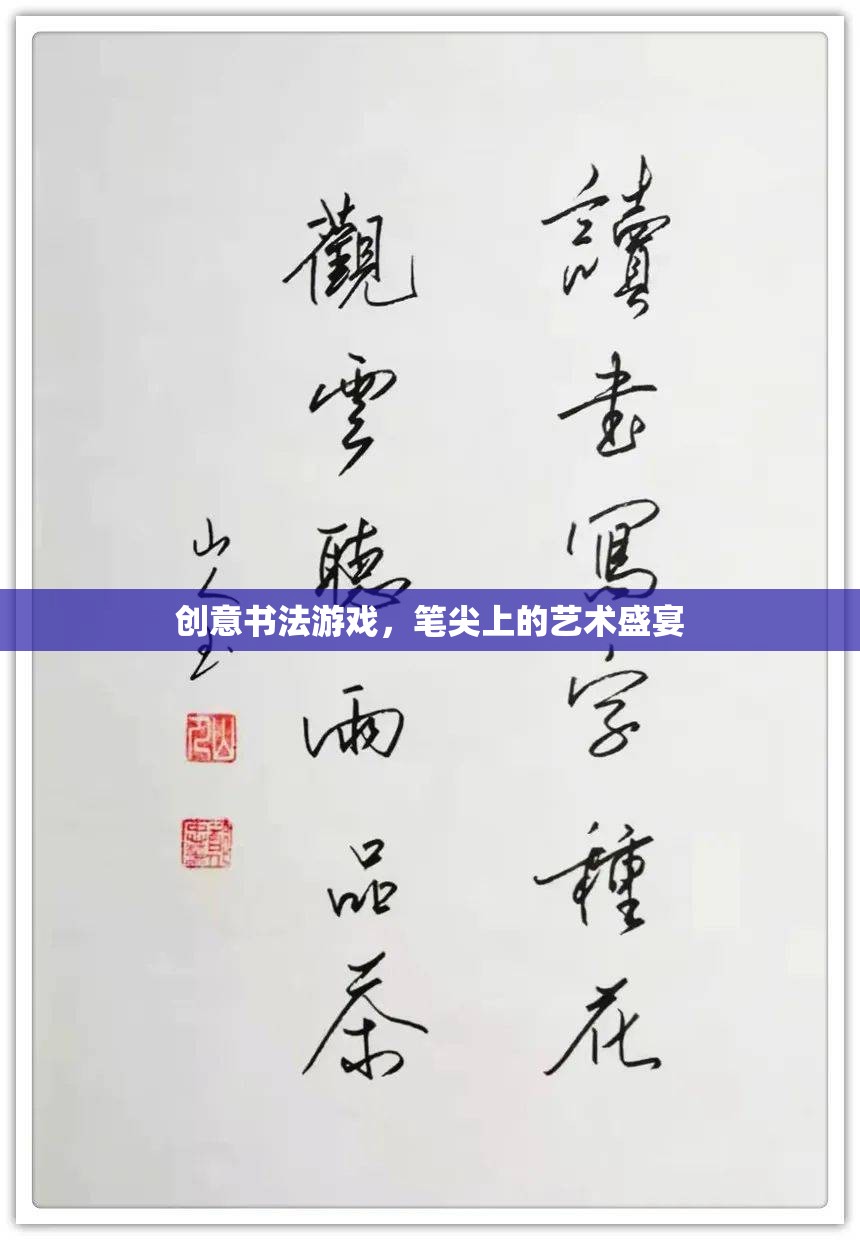 讀書寫字種花
觀雲聽雨品茶
山人玉
创意书法游戏，笔尖上的艺术盛宴